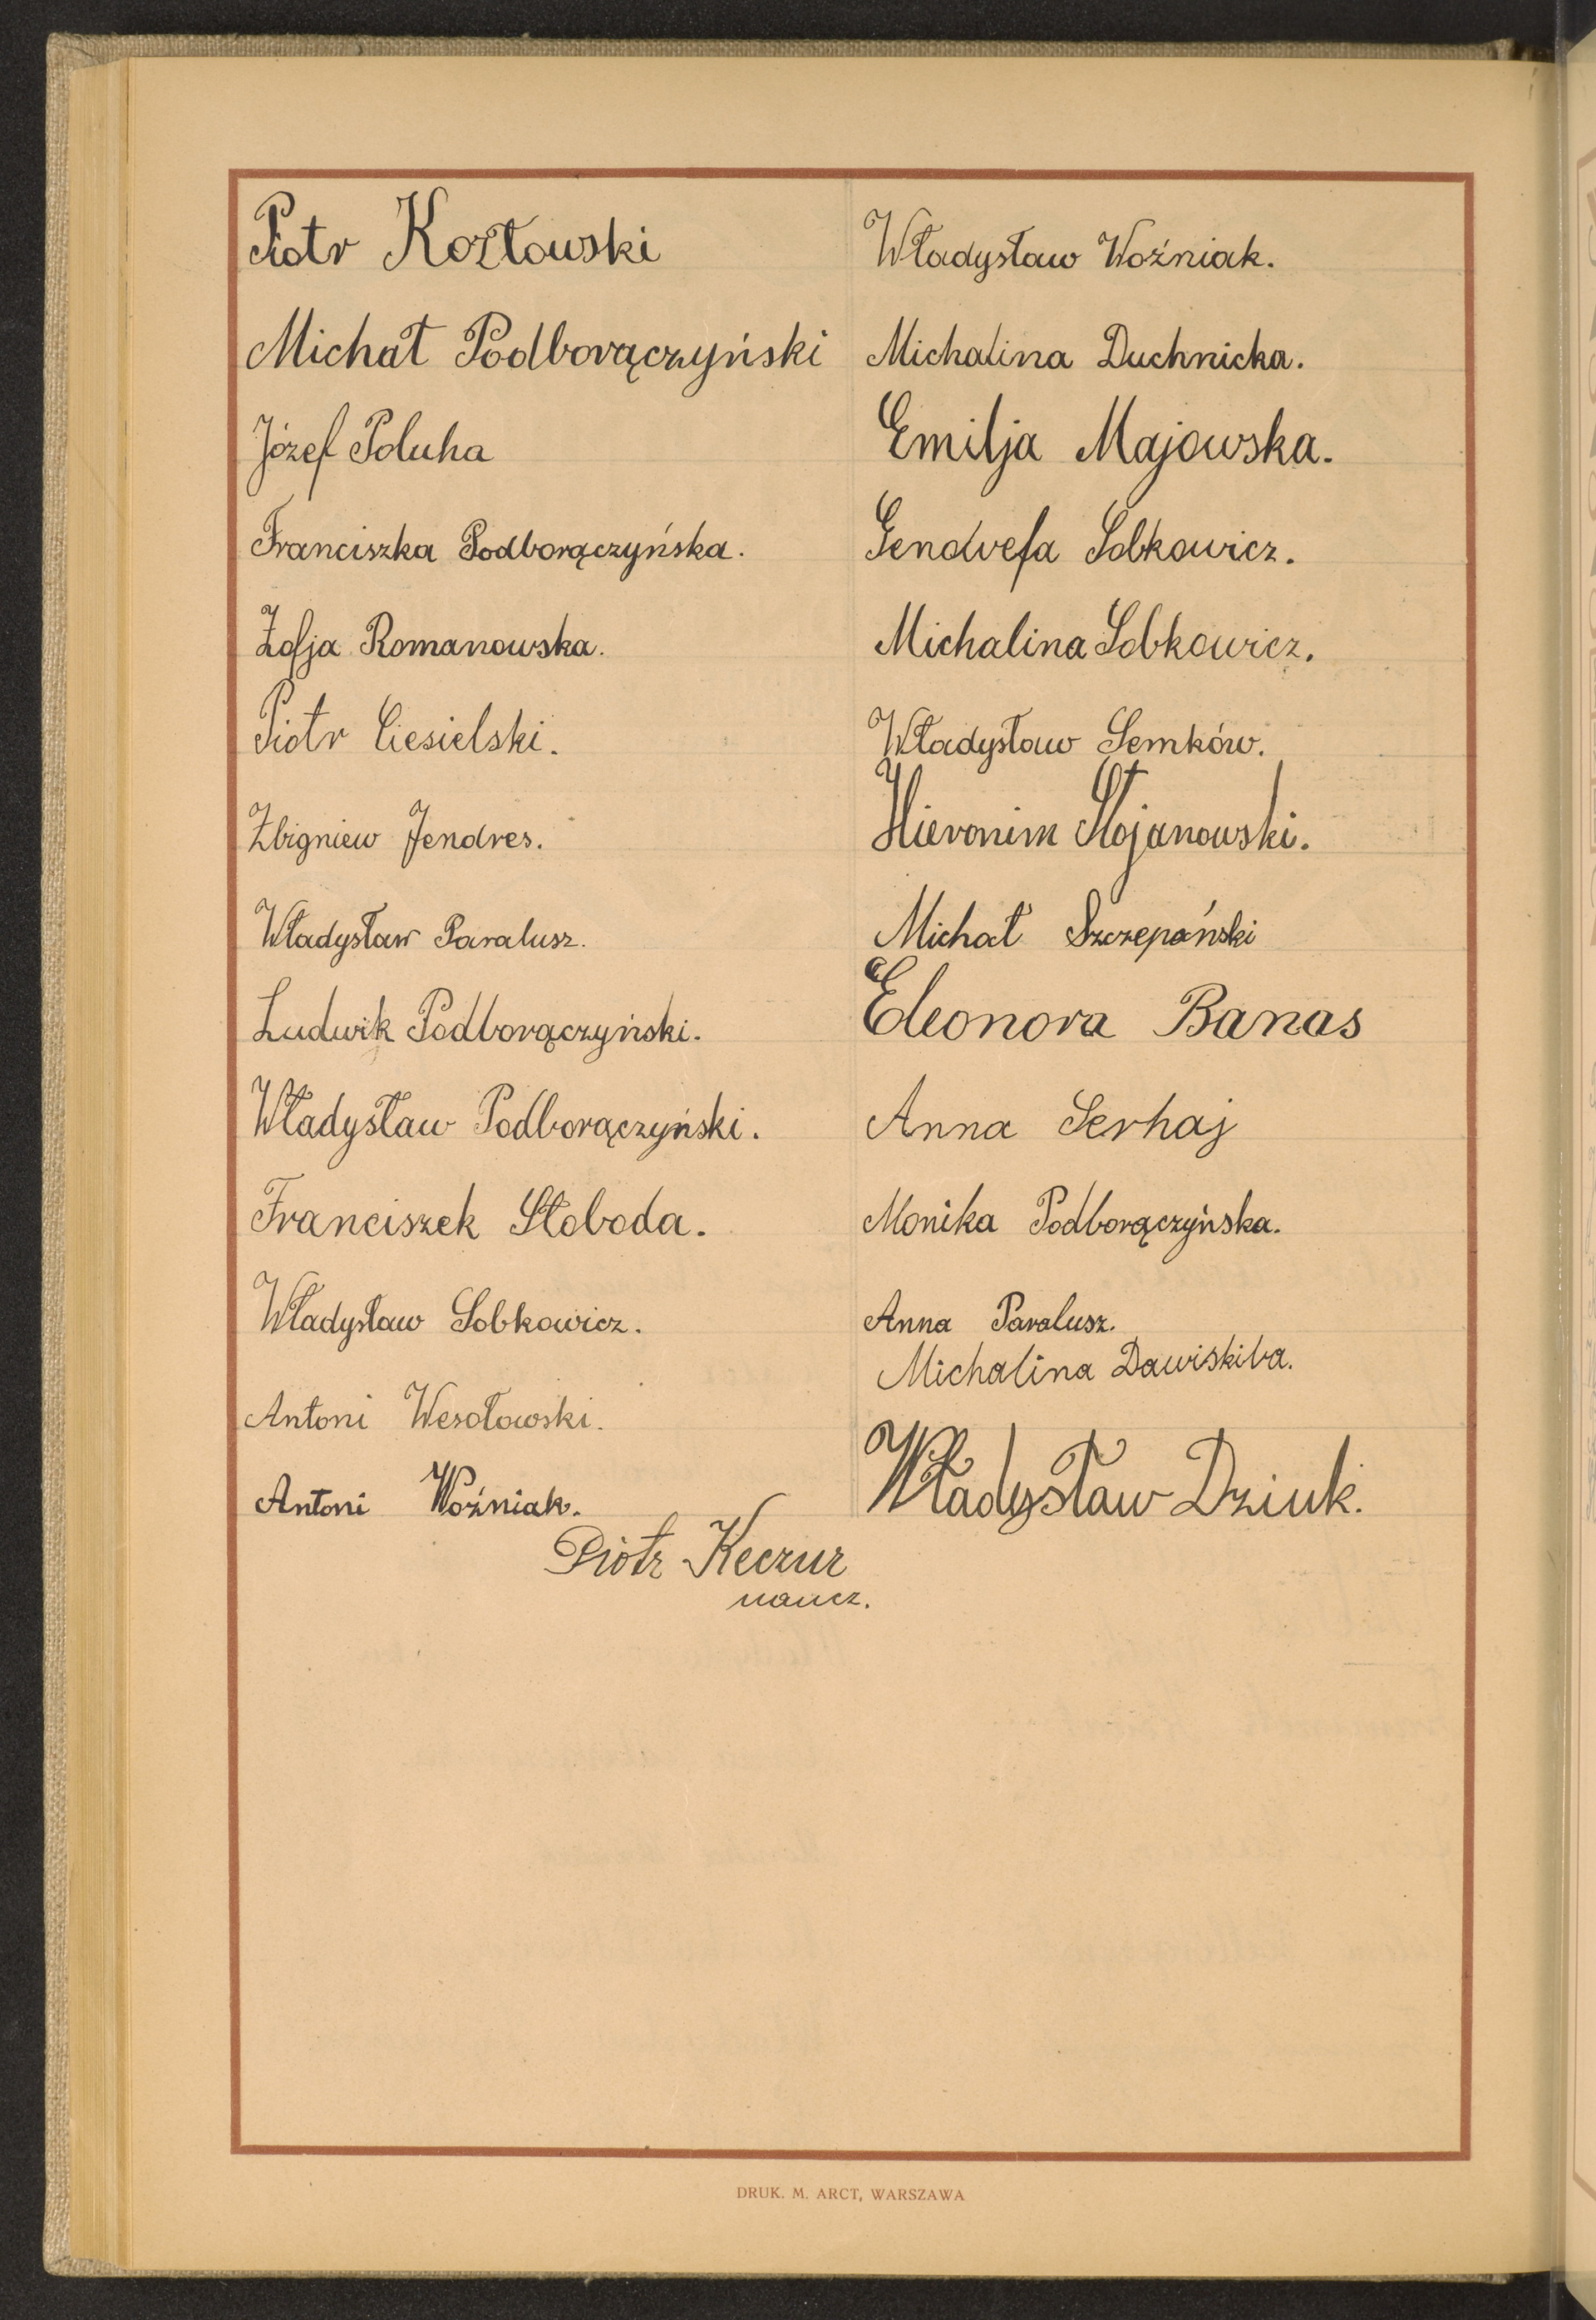 Piotr Kozłowski
Michał Podborączyński
Józef Poluha
Franciszka Podborączyńska.
Zofja Romanowska.
Piotr Ciesielski.
Zbigniew Jendres.
Władysław Paralusz.
Ludwik Podborączyński.
Władysław Podborączyński.
Franciszek Słoboda.
Władysław Sobkowicz.
Antoni Wesołowski.
Antoni Woźniak.
Władysław Woźniak.
Michalina Duchnicka.
Emilja Majowska.
Gendvefa Sobkowicz.
Michalina Sobkowicz.
Władysław Semków.
Hieronim Stojanowski.
Michał Szczepański
Eleonora Banas
Anna Serhaj
Monika Podborączyńska.
Anna Paralusz.
Michalina Dawiskiba.
Władysław Dziuk.
Piotr Keczur
naucz.
DRUK. M. ARCT, WARSZAWA